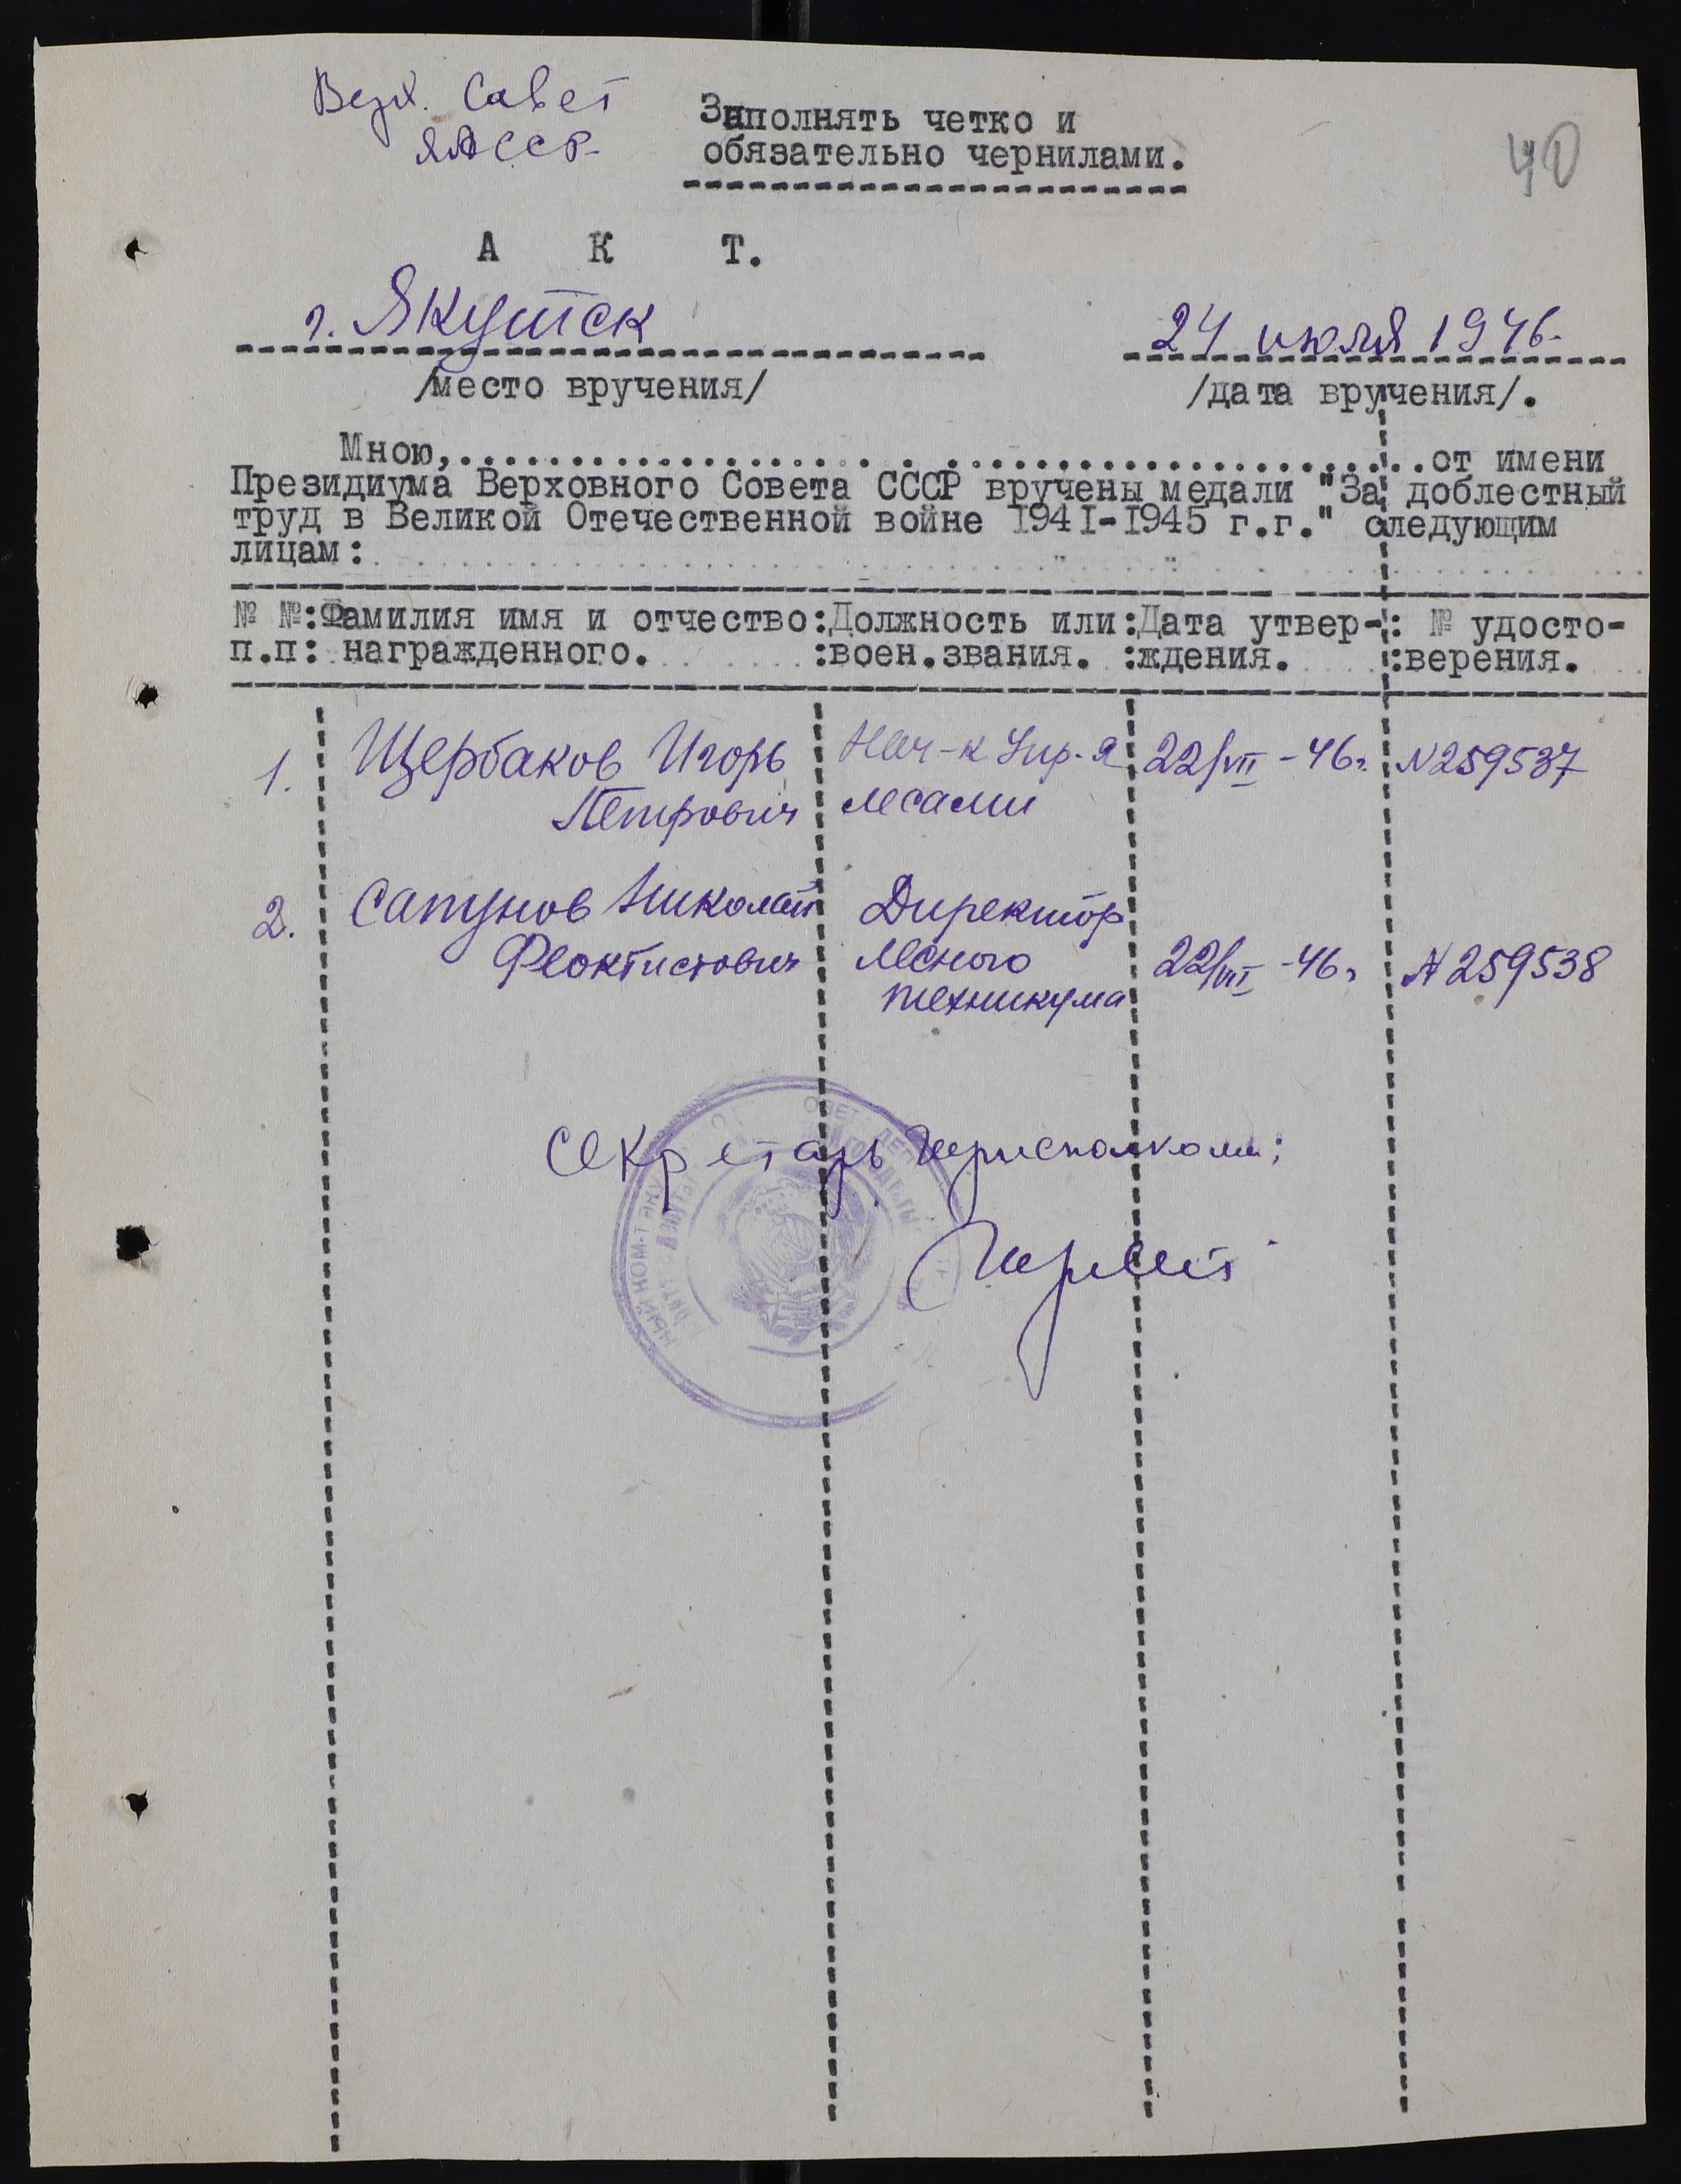 Верх. Совет
ЯАССР-
Заполнять четко и
обязательно чернилами.
40
А К Т.
г. Якутск 24 июля 1946-
/место вручения/ /дата вручения/.
Мною,..........от имени
Президиума Верховного Совета СССР вручены медали "За доблестный
труд в Великой Отечественной войне 1941-1945 г.г." следующим
лицам:
№ №:Фамилия имя и отчество:Должность или:Дата утвер-: № удосто-
п.п: награжденного. :воен.звания. :ждения. :верения.
1. Щербаков Игорь Нач-к Упр-я 22/VII-46г. N259537
Петрович лесами
2. Сапунов Николай Директор
Феоктистович лесного 22/VII-46г. N259538
техникума
Секретарь Горисполкома: